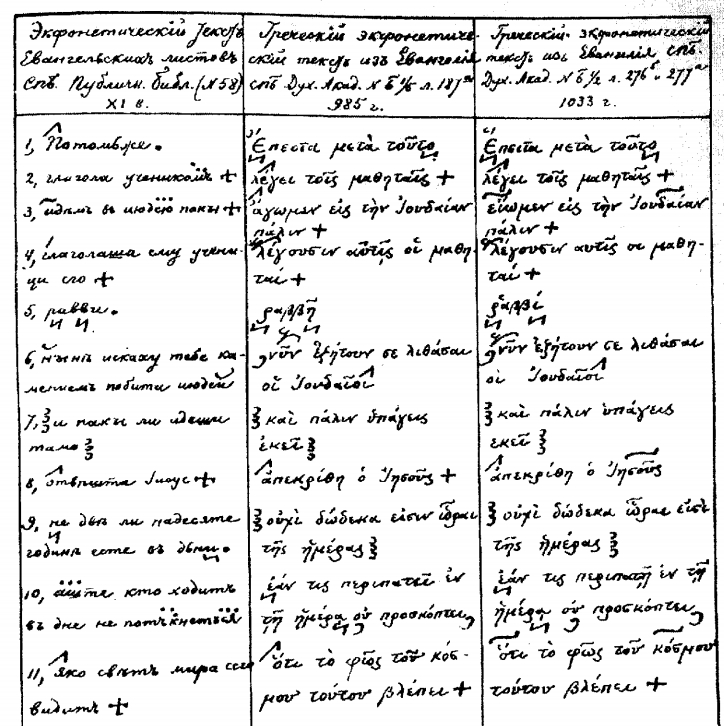 Экфонетическій текстъ
Евангельскихъ листовъ
Спб. Публичн. Библ. (N 58)
XI в.
1, Потомъже.
2, глагола ученикомъ +
3, идѣмъ въ июдѣю пакы +
4, глаголаша ему учени-
ци его +
5, равви.
6, нынѣ искаху тебе ка-
мениемъ побити июдеи
7, и пакы ли идеши
тамо
8, отвѣшта Iисус +
9, не двѣ ли надесяте
годинѣ есте въ дьни.
10, аште кто ходитъ
въ дне не потъкнетъся
11, яко свѣтъ мира сего
видитъ +
Греческій экфонетиче-
скій текстъ изъ Евангелія
спб Дух. Акад. N Б л. 187
985 г.
Ἔπειτα μετὰ τοῦτο
λέγει τοῖς μαθηταῖς +
ἄγωμεν εἰς τὴν Ἰουδαίαν
πάλιν +
λέγουσιν αὐτῷ οἱ μαθη-
ταί +
ραββῆ
νῦν ἐξήτουν σε λιθάσαι
οἱ Ἰουδαῖοι
καὶ πάλιν ὑπάγεις
ἐκεῖ
ἀπεκρίθη ὁ Ἰησοῦς +
οὐχὶ δώδεκα εἰσιν ὧραι
τῆς ἡμέρας
ἐάν τις περιπατεῖ ἐν
τῇ ἡμέρα οὐ προσκόπτει
ὅτι τὸ φῶς τοῦ κόσ-
μου τούτου βλέπει +
Греческій экфонетическій
текстъ изъ Евангелія Спб.
Дух. Акад. N Б 1/2 л. 276 и 277
1033 г.
Ἔπειτα μετὰ τοῦτο
λέγει τοῖς μαθηταῖς +
εἴωμεν εἰς τὴν Ἰουδαίαν
πάλιν +
λέγουσιν αυτῷ οι μαθη-
ταί +
ῥαββί
νῦν ἐξήτουν σε λιθάσαι
οἱ Ἰουδαῖοι
καὶ πάλιν ὑπάγεις
εκεῖ
ἀπεκρίθη ὁ Ἰησοῦς
οὐχὶ δώδεκα ὧραι εἰσὶ
τῆς ἡμέρας
ἐάν τις περιπατῇ ἐν τῇ
ἡμέρᾳ οὐ προσκόπτει
ὅτι τὸ φῶς τοῦ κόσμου
τούτου βλέπει +